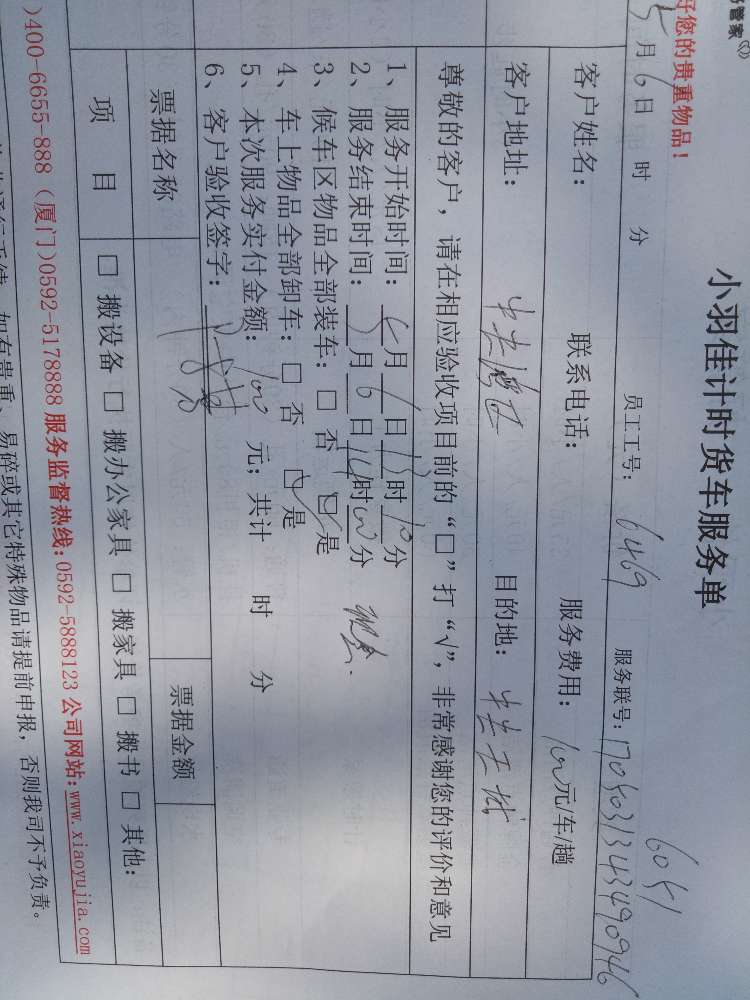 小羽佳计时货车服务单
6051
好您的贵重物品！
5月6日 时 分 员工工号：6469 服务联号：
客户姓名： 联系电话： 服务费用：100元/车/趟
客户地址： 目的地：
尊敬的客户，请在相应验收项目前的“□”打“√”，非常感谢您的评价和意见
1、服务开始时间：5月6日13时10分
2、服务结束时间：5月6日14时00分 现金.
3、候车区物品全部装车：□ 否 ☑是
4、车上物品全部卸车：□ 否 ☑是
5、本次服务实付金额：100 元；共计 时 分
6、客户验收签字：
票据名称 票据金额
项 目 □ 搬设备 □ 搬办公家具 □ 搬家具 □ 搬书 □ 其他：
)400-6655-888（厦门)0592-5178888 服务监督热线:0592-5888123 公司网站:www.xiaoyujia.com
如有贵重、易碎或其它特殊物品请提前申报，否则我司不予负责。